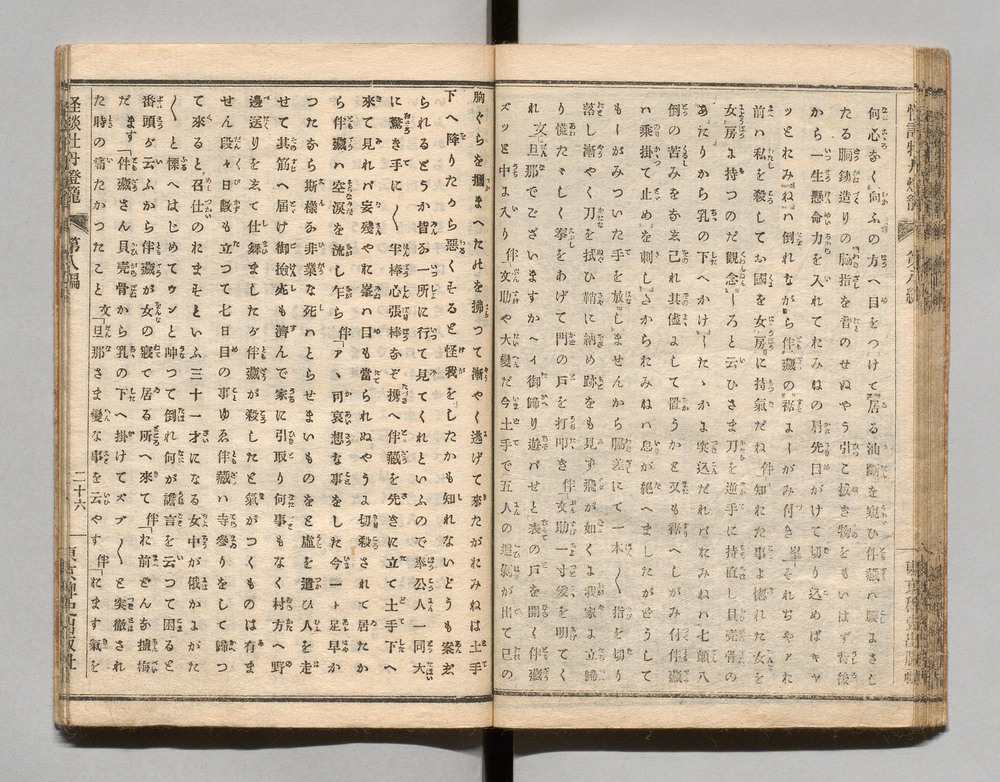 何心なく向ふの方へ目をつけて居る油断を窺ひ伴藏ハ腰よさし
たる胴鉄造りの脇指を音のせぬやう引こ抜き物をもいはず背後
から一生懸命力を入れておみねの肩先目がけて切り込めばキャ
ッとおみねハ倒れながら伴藏の裾よしがみ付き峯「それぢやアお
前ハ私を殺してお國を女房に持氣だね伴「知れた事よ惚れた女を
女房よ持つのだ觀念しろと云ひさま刀を逆手に持直し貝売骨の
あたりから乳の下へかけしたゝかよ突込だれバおみねハ七顛八
倒の苦みをなゑ己れ其儘よして置うかと又も裾へしがみ付伴藏
ハ乘掛て止めを刺しさからおみねハ息が絶へましたがどうして
もしがみついた手を放しませんから脇差にて一本〳〵指を切り
落し漸やく刀を拭ひ鞘に納め跡をも見ず飛が如くよ我家よ立歸
り慌たゞしく拳をあげて門の戸を打叩き伴「文助一寸爰を明てく
れ文「旦那でございますかヘイ御歸り遊バせと表の戸を開く伴藏
ズッと中よ入り伴「文助や大變だ今土手で五人の追剥が出て己の
胸ぐらを摑まへたのを拂つて漸やく逃げて来たがおみねは土手
下へ降りたから惡くそると怪我をしたかも知れないどうも案ゑ
られるどうか皆る一所に行て見てくれといふので奉公人一同大
に驚き手に〳〵半棒心張棒なぞ携へ伴藏を先きに立て土手下へ
來て見れバ妄殘やおに峯ハ目も當られぬやうよ切殺されて居たか
ら伴藏ハ空涙を流し乍ら伴「アヽ可哀想な事をした今一ト足早か
つたなら斯様る非業な死ハとらせまいものをと虛を遣ひ人を走
せて其筋へ届け御撿死も濟んで家に引取り何事もなく村方へ野
邊送りをゑて仕舞ましたが伴藏が殺したと氣がつくものは有ま
せん段々日數も立つて七日目の事ゆゑ伴藏ハ寺參りをして歸つ
て來ると召仕のおまそといふ三十一才になる女中が俄かよがた
〳〵と慄へはじめてウンと呻つて倒れ何が譫言を云つて困ると
番頭が云ふから伴藏が女の寢て居る所へ來て伴「お前どんな塩梅
だます「伴藏さん貝売骨から乳の下へ掛けてズブ〳〵と突徹され
た時の痛たかつたこと文「旦那さま變な事を云やす伴「おます氣を
怪談牡丹燈籠
第八編
二十六